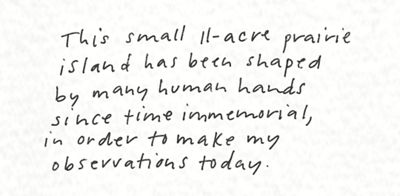 This small 11-acre prairie
island has been shaped
by many human hands
since time immemorial,
in order to make my
observations today.